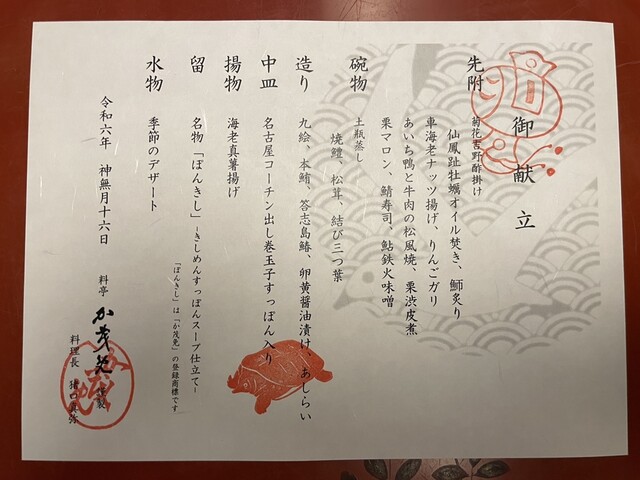 御献立
先附
菊花吉野酢掛け
仙鳳趾牡蠣オイル焚き、鰤炙り
車海老ナッツ揚げ、りんごガリ
あいち鴨と牛肉の松風焼、栗渋皮煮
栗マロン、鯖寿司、鮎鉄火味噌
碗物
土瓶蒸し
焼鱧、松茸、結び三つ葉
造り
九絵、本鮪、答志島鰆、卵黄醤油漬け、あしらい
中皿
名古屋コーチン出し巻玉子すっぽん入り
揚物
海老真薯揚げ
留
名物「ぽんきし」~きしめんすっぽんスープ仕立て~
「ぽんきし」は「か茂免」の登録商標です
水物
季節のデザート
令和六年 神無月十六日
料亭 か茂免 謹製
料理長